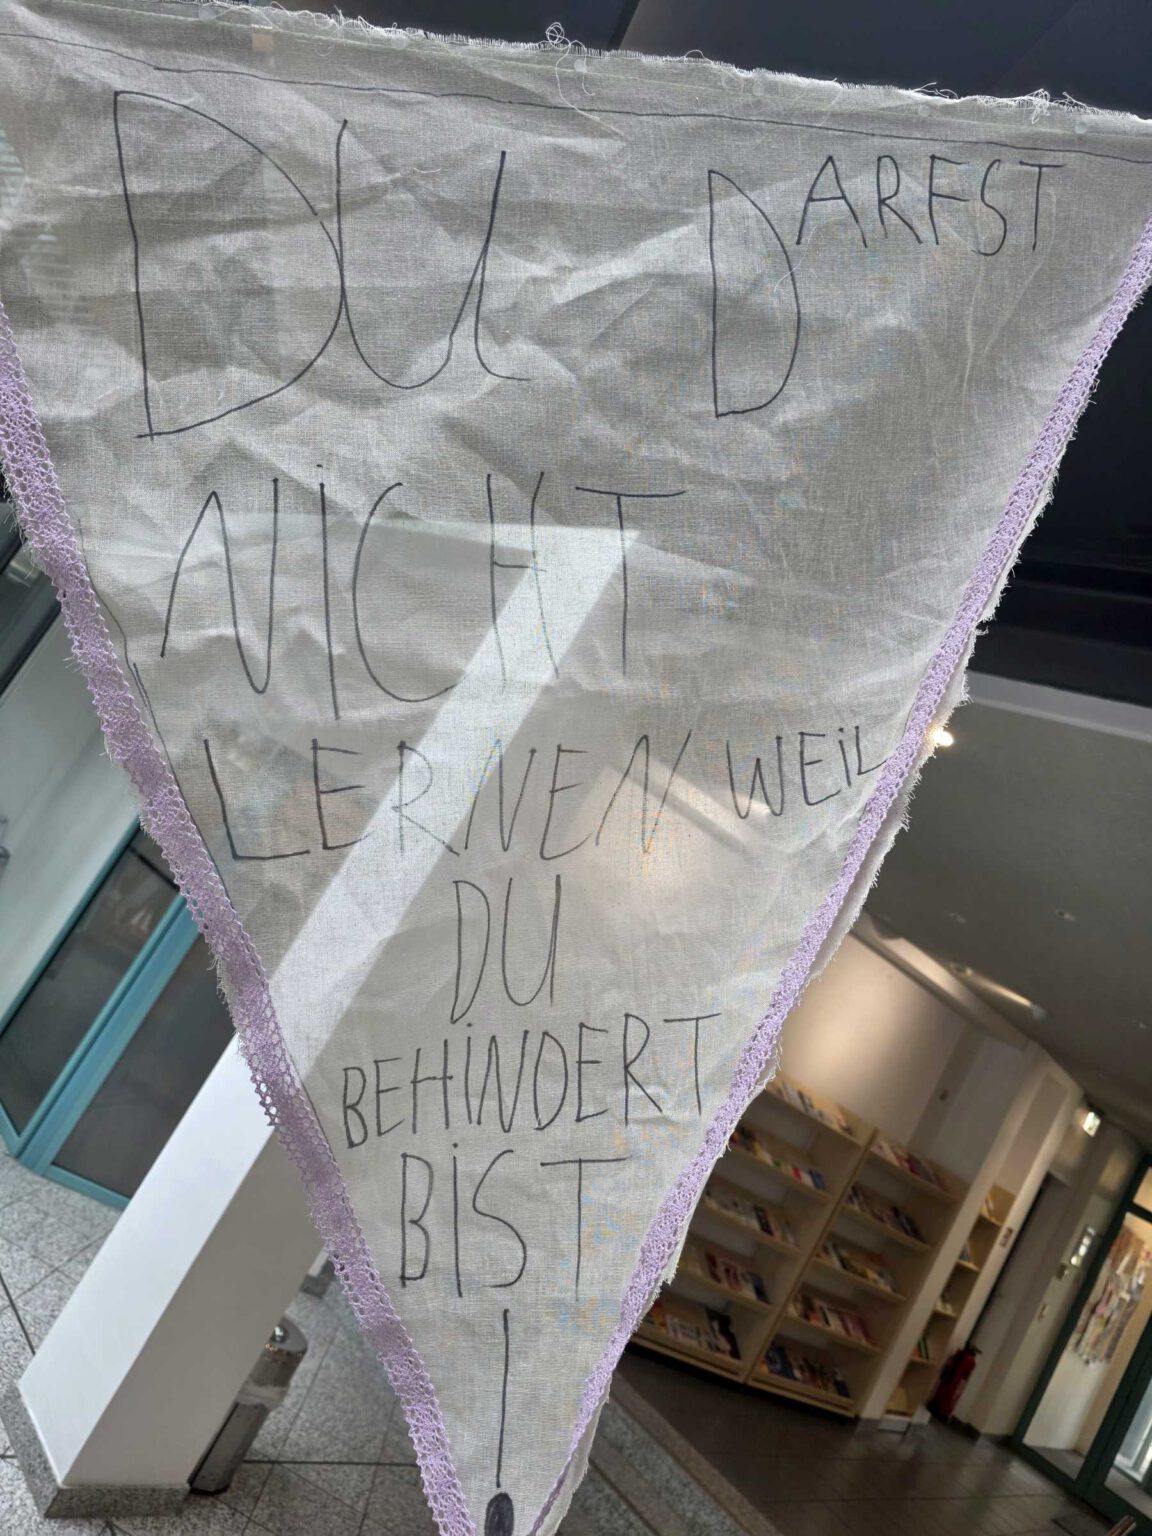 DU DARFST
NICHT
LERNEN WEiL
DU
BEHiNDERT
BiST
!